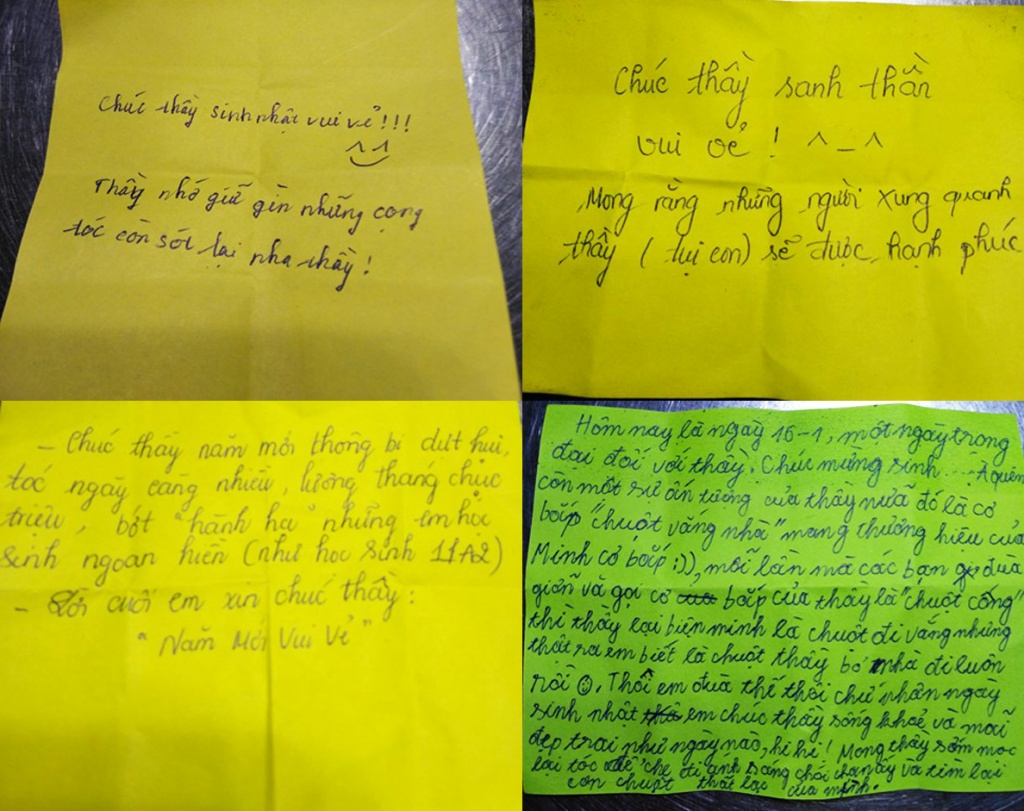 Chúc thầy sinh nhật vui vẻ!!!
Thầy nhớ giữ gìn những cọng
tóc còn sót lại nha thầy!
Chúc thầy sanh thần
vui vẻ! ^_^
Mong rằng những người xung quanh
thầy (tụi con) sẽ được hạnh phúc
- Chúc thầy năm mới không bị dụt hụi,
tóc ngày càng nhiều, lương tháng chục
triệu, bớt "hành hạ" những em học
sinh ngoan hiền (như học sinh 11A2)
- Lời cuối em xin chúc thầy:
"Năm Mới Vui Vẻ"
Hôm nay là ngày 16-1, một ngày trọng
đại đối với thầy. Chúc mừng sinh ... À quên
còn một sự ấn tượng của thầy nữa đó là cơ
bắp "chuột vắng nhà" mang thương hiệu của
Minh cơ bắp :)), mỗi lần mà các bạn đùa
giỡn và gọi cơ bắp của thầy là "chuột cống"
thì thầy lại biện minh là chuột đi vắng nhưng
thật ra em biết là chuột thầy bỏ nhà đi luôn
rồi ☺. Thôi em đùa thế thôi chứ nhân ngày
sinh nhật em chúc thầy sống khoẻ và mãi
đẹp trai như ngày nào, hi hi! Mong thầy sớm mọc
lại tóc để che đi ánh sáng chói chang ấy và tìm lại
con chuột thất lạc của mình.